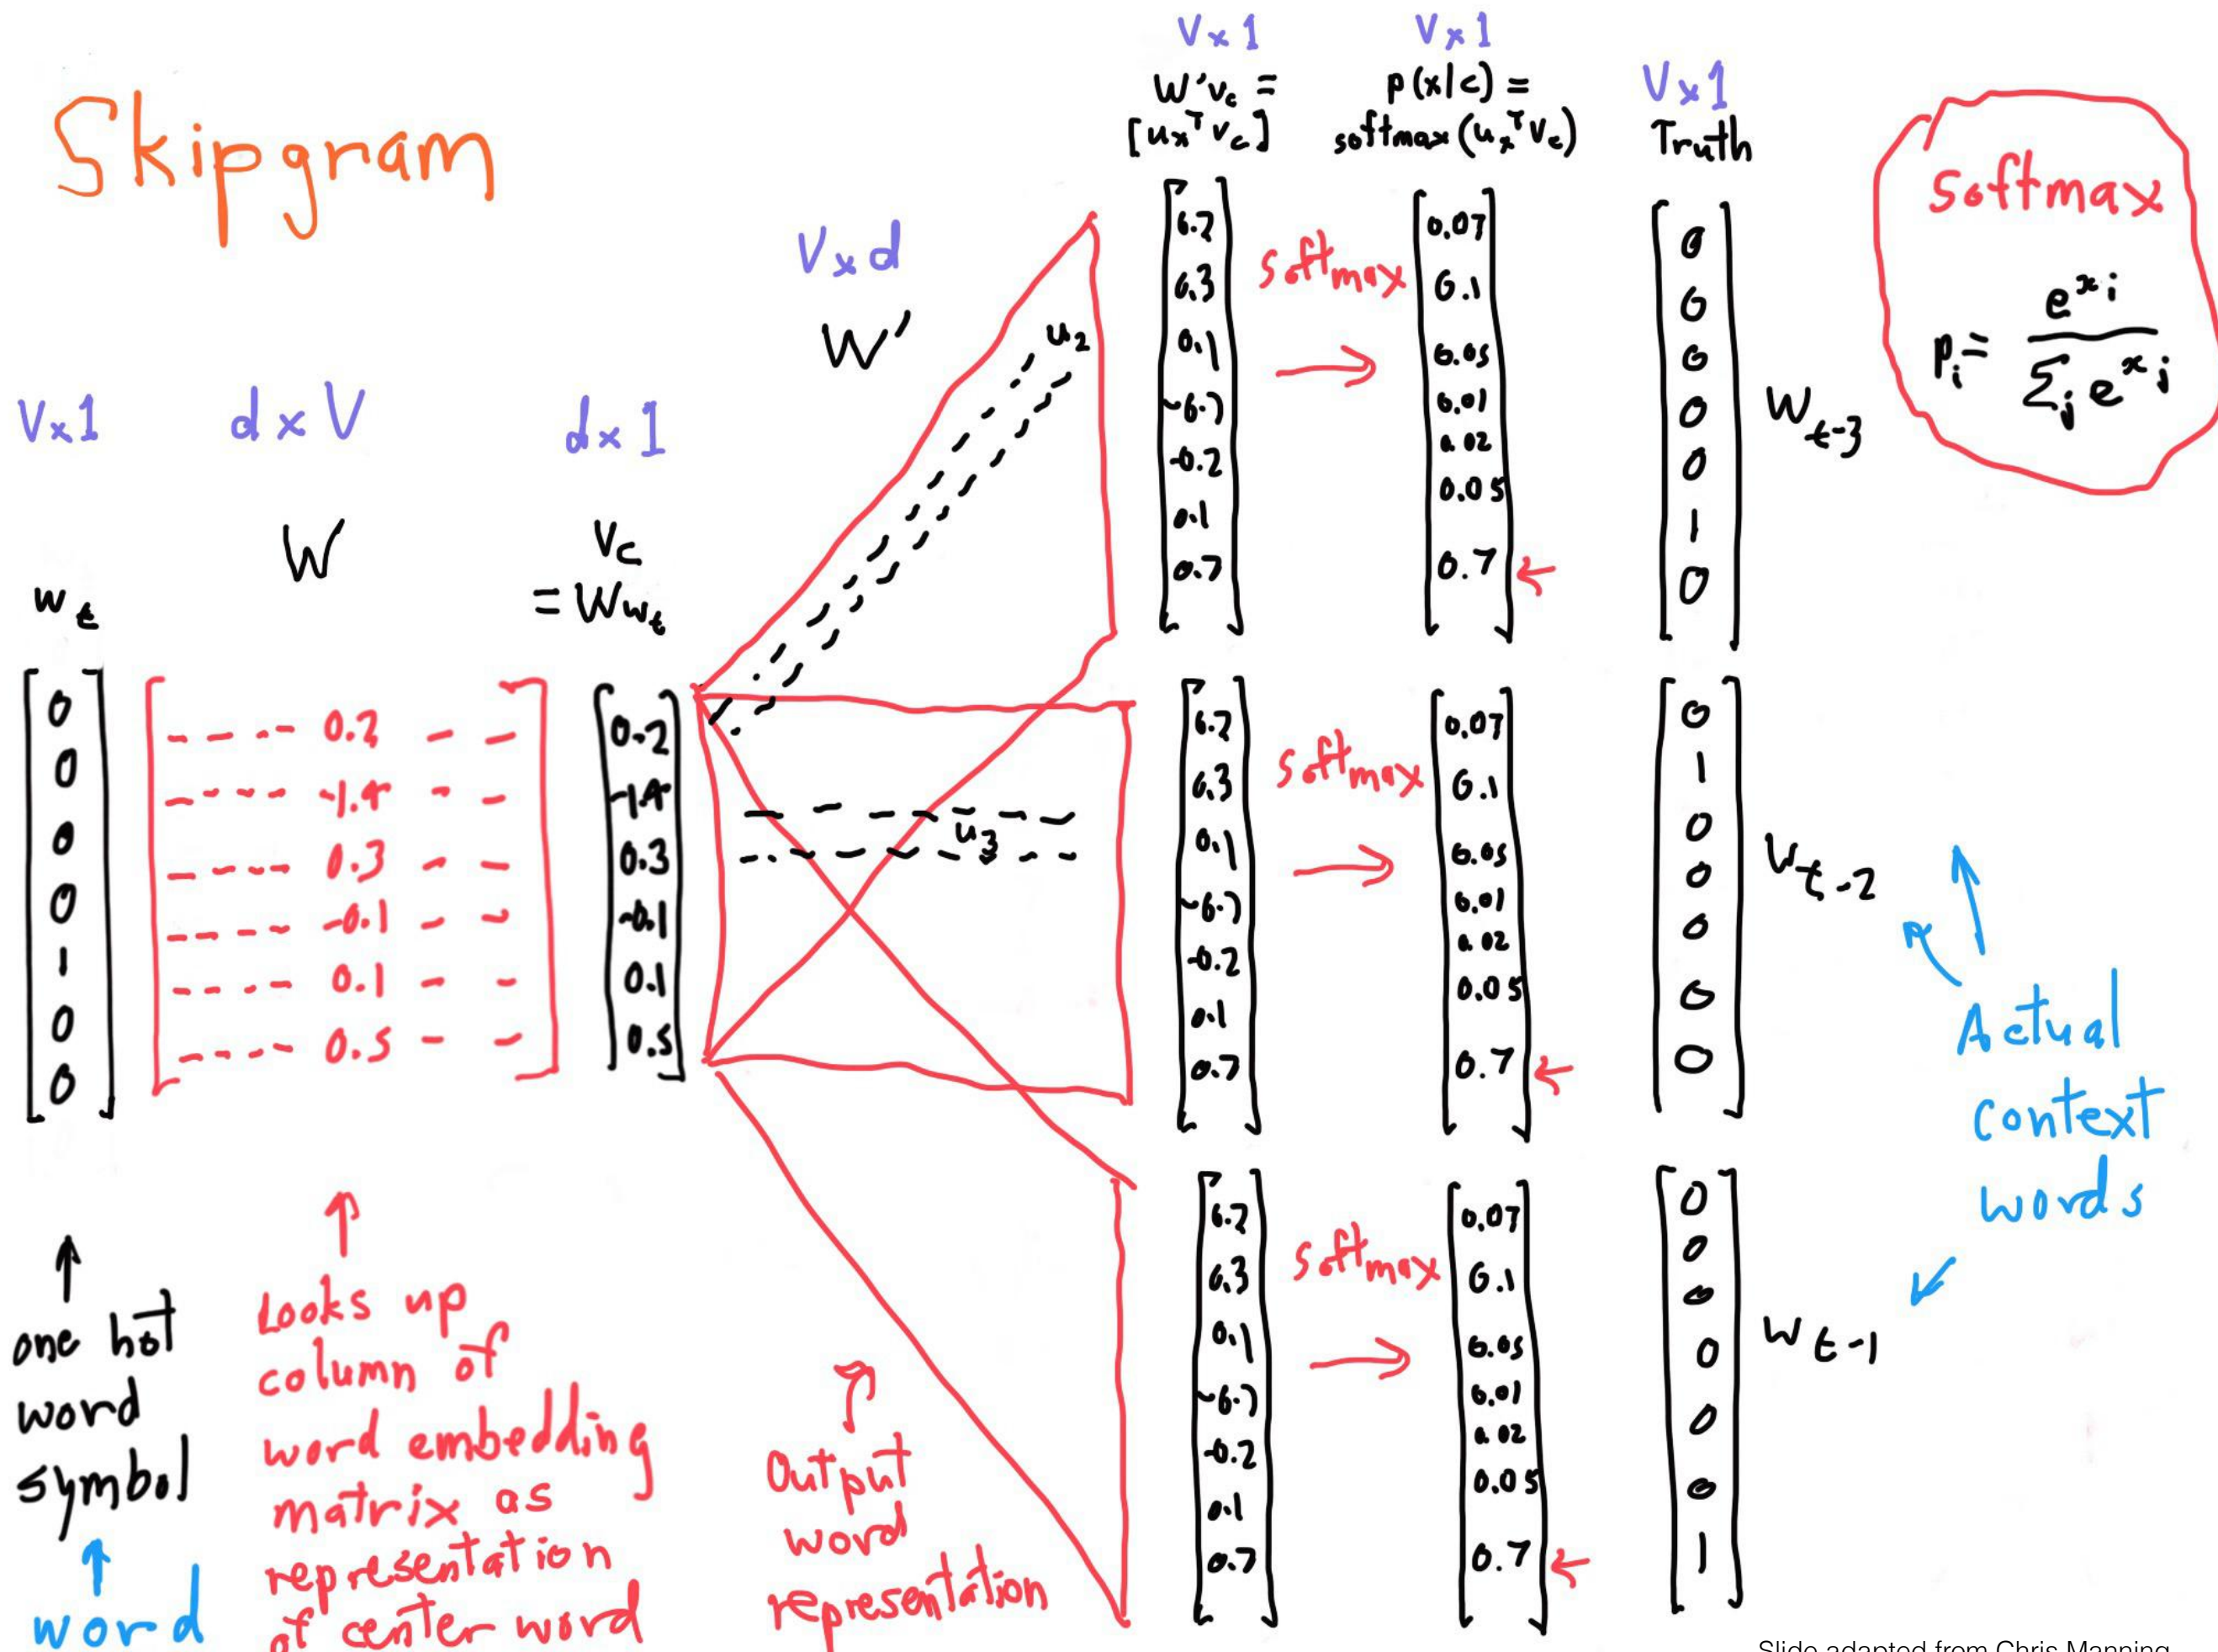 Skipgram
V×1
w_t
0
0
0
0
1
0
0
↑
one hot
word
symbol
↑
word
d×V
W
---- 0.2 --
---- -1.4 --
---- 0.3 --
---- -0.1 --
---- 0.1 --
---- 0.5 --
↑
Looks up
column of
word embedding
matrix as
representation
of center word
d×1
v_c
= Ww_t
0.2
-1.4
0.3
-0.1
0.1
0.5
V×d
W'
u_2
u_3
Output
word
representation
V×1
W'v_c =
[u_x^T v_c]
V×1
p(x|c) =
softmax(u_x^T v_c)
V×1
Truth
6.7
6.3
0.1
-6.7
-0.2
0.1
0.7
softmax
→
0.07
0.1
0.05
0.01
0.02
0.05
0.7 ←
0
0
0
0
0
1
0
w_t-3
6.7
6.3
0.1
-6.7
-0.2
0.1
0.7
softmax
→
0.07
0.1
0.05
0.01
0.02
0.05
0.7 ←
0
1
0
0
0
0
0
w_t-2
6.7
6.3
0.1
-6.7
-0.2
0.1
0.7
softmax
→
0.07
0.1
0.05
0.01
0.02
0.05
0.7 ←
0
0
0
0
0
0
1
w_t-1
softmax
p_i = e^x_i / Σ_j e^x_j
Actual
context
words
Slide adapted from Chris Manning